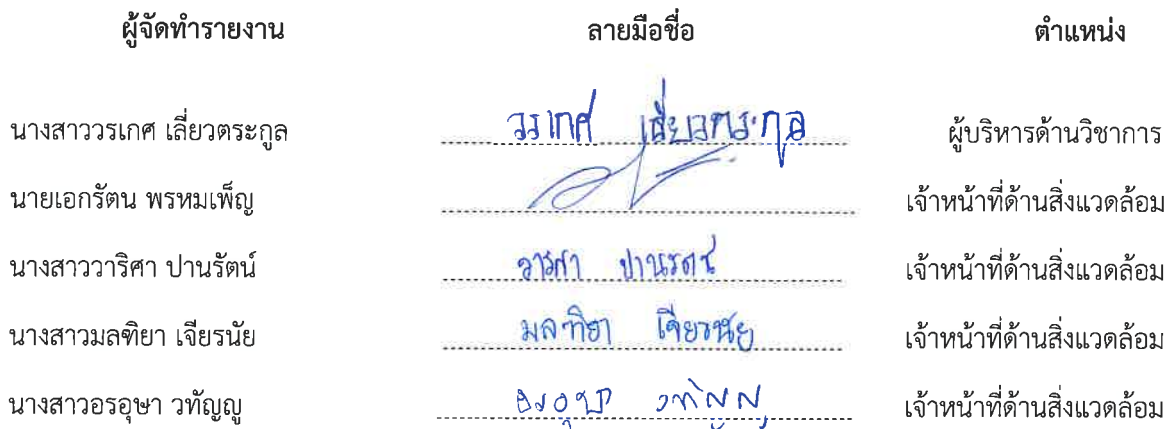 ผู้จัดทำรายงาน ลายมือชื่อ ตำแหน่ง
นางสาววรเกศ เลี่ยวตระกูล วรเกศ เลี่ยวตระกูล ผู้บริหารด้านวิชาการ
นายเอกรัตน พรหมเพ็ญ เจ้าหน้าที่ด้านสิ่งแวดล้อม
นางสาววาริศา ปานรัตน์ วาริศา ปานรัตน์ เจ้าหน้าที่ด้านสิ่งแวดล้อม
นางสาวมลฑิยา เจียรนัย มลฑิยา เจียรนัย เจ้าหน้าที่ด้านสิ่งแวดล้อม
นางสาวอรอุษา วทัญญู อรอุษา วทัญญู เจ้าหน้าที่ด้านสิ่งแวดล้อม